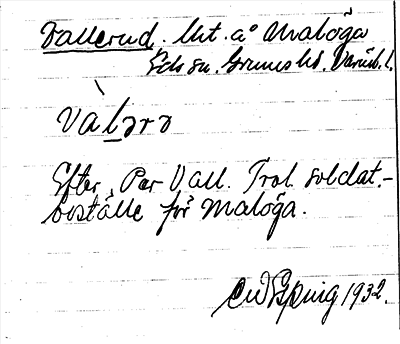 Vallerud. Lht. å Malöga
Eds sn. Grums hd. Värml. l.
Va̍lərə
Efter Per Vall. Trol. soldat-
boställe för Malöga.
1932.